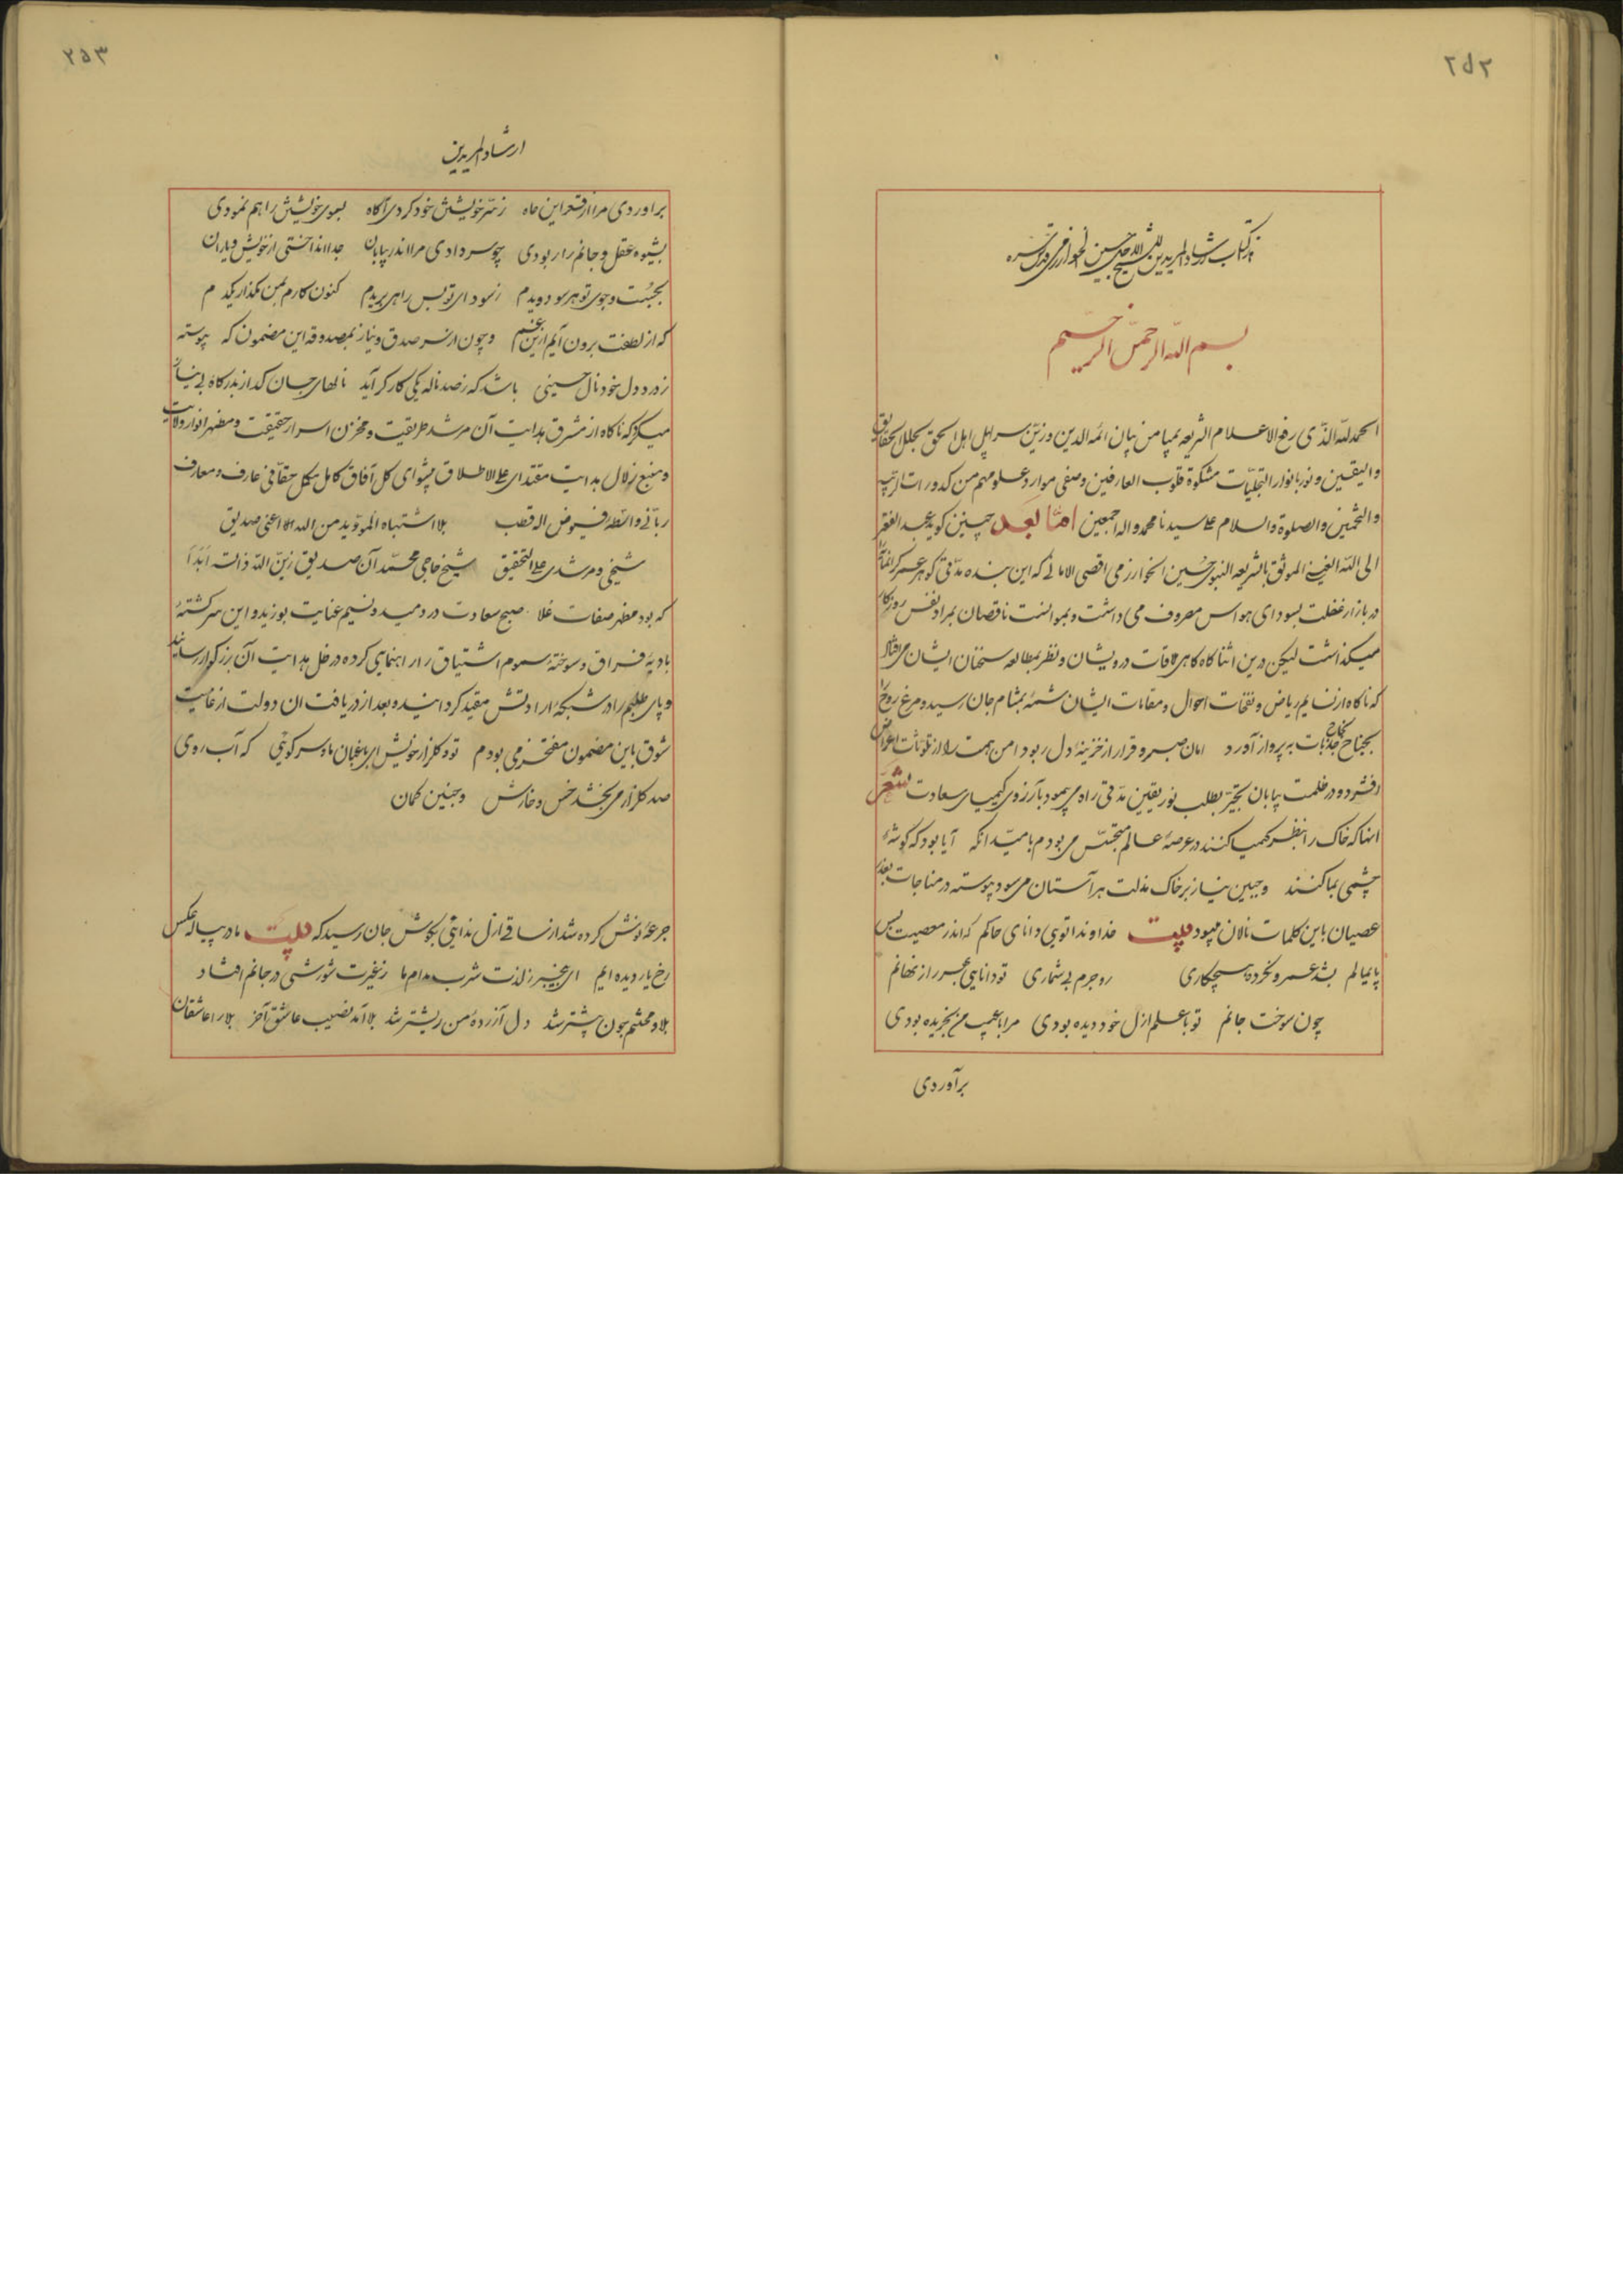 ۲۵۲
هذا کتاب ارشاد المریدین للشیخ حسین الخوارزمی قدس سره
بسم الله الرحمن الرحیم
الحمدلله الذی رفع الاعلام الشریعه بمیامن بیان ائمه الدین وزین سرایر اهل الحق بجلال الحقایق
والیقین و نور بانوار التجلیّات مشکوة قلوب العارفین وصفی موارد علومهم من کدورات الریب
والتخمین والصلوة والسلام علی سیدنا محمد واله اجمعین امّا بعد چنین کوید عبد الفقیر
الی الله الغنی الموثق بالشریعه النبوی حسین الخوارزمی اقصی الامانی که این بنده مدّتی کوهر عمر کرانمایه
در بازار غفلت بسودای هواس مصروف می داشت و نقصان بمراد نفس روزکار
میکذاشت لیکن درین اثنا کاه کاهی ملاقات درویشان و نظر بمطالعه سخنان ایشان می افتاد
که ناکاه از نسایم ریاض و نفحات احوال و مقامات ایشان شمهٔ بمشام جان رسید و مرغ روح را
بجناح جذبات به پرواز آورد امان صبر و قرار از خزینهٔ دل ربود دامن همت را از تلویثات اعراض
افشرد و در ظلمت بیابان تحیّر بطلب نور یقین مدّتی راه می پیمود بآرزوی کیمیای سعادت شعر
انها که خاک را بنظر کیمیا کنند در عرصهٔ عالم متجسّس می بودم بامید انکه آیا بود که کوشهٔ
چشمی بما کنند وجبین نیاز بر خاک مذلت هر آستان می سود پیوسته در مناجات بعد
عصیان باین کلمات نالان میبود بیت خداوندا تویی دانای حاکم که اندر معصیت بس
پایمالم بشد عمر و نکرده هیچکاری رو جرم بی شماری تو دانایی بهر راز نهانم
چون سوخت جانم تو با علم ازل خود دیده بودی مرا با عیب من بخریده بودی
برآوردی
۲۵۳
ارشاد المریدین
براوردی مرا از قعر این چاه ز سرّ خویش خود کردی آکاه بسوی خویش راهم نمودی
بشیوه عقل و جانم را ربودی چو سر دادی مرا اندر بیابان جدا انداختی از خویش و یاران
بجست و جوی تو هر سو دویدم ز سودای تو بس راهی بریدم کنون کارم بمن مکذار یکدم
که از لطفت برون آیم ازین غم و چون از سر صدق و نیاز بمصدوقه این مضمون که پیوسته
ز درد دل خود نال حسینی باشد که ز صد ناله یکی کارکر آید نالهای جان کداز بدرکاه بی نیاز
میکرد که ناکاه از مشرق هدایت آن مرشد طریقت و مخزن اسرار حقیقت و مظهر انوار ولایت
و منبع زلال هدایت مقتدای علی الاطلاق پیشوای کل آفاق کامل مکمل حقّانی عارف و معارف
ربّانی واسطهٔ فیوض اله قطب بلا اشتباه المویّد من الله اعنی صدیق
شیخی و مرشدی علی التحقیق شیخ حاجی محمّد آن صدیق زیّن اللّه ذاته ابداً
که بود مظهر صفات علا صبح سعادت در دمید و نسیم عنایت بوزید و این سرکشتهٔ
بادیهٔ فراق و سوختهٔ سموم اشتیاق را راهنمایی کرده در ظل هدایت آن بزرکوار رسانید
و پای طلبم را در شبکهٔ ارادتش مقید کردانید و بعد از دریافت ان دولت از غایت
شوق باین مضمون مفتخر می بودم تو و کلزار خویش ای باغبان ما و سر کویی که آب روی
صد کلزار می بخشد خس و خارش و چنین کمان
جرعهٔ نوش کرده شد از ساقی ازل ندایی بکوش جان رسید که بیت ما در پیاله عکس
رخ یار دیده ایم ای بیخبر ز لذت شرب مدام ما ز غیرت شورشی در جانم افتاد
بلا و محنتم چون بیشتر شد دل آزردهٔ من ریشتر شد بلا آمد نصیب عاشق آخر بلا را عاشقان